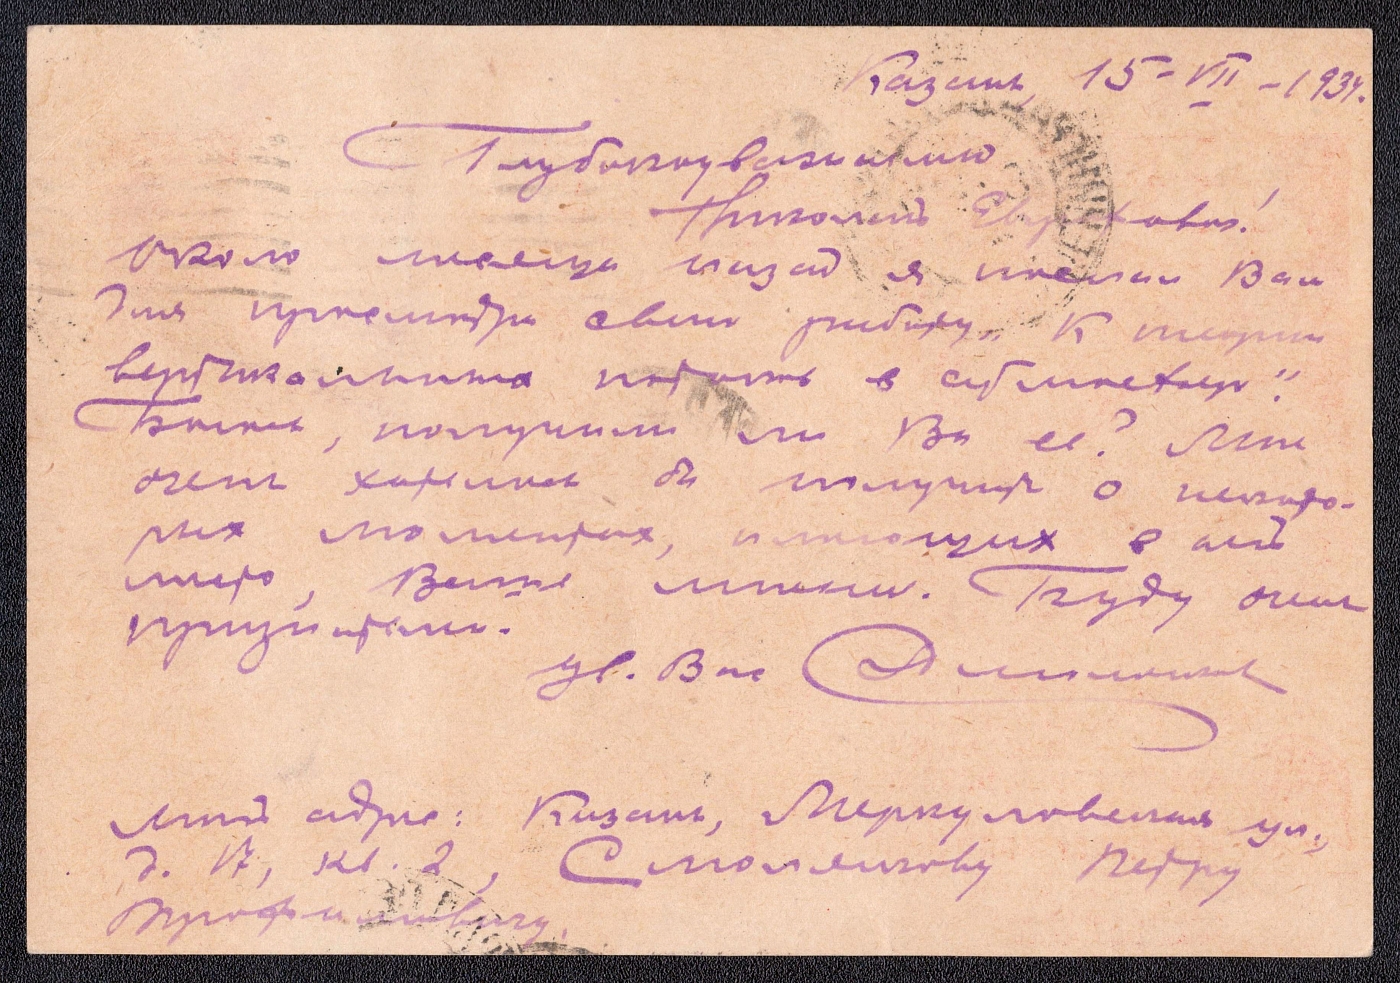 Казань, 15-VII-1934.
Глубокоуважаемый
Николай !
Около месяца назад я послал Вам
для просмотра свою работу „К теории
вертикальных
Боюсь, получили ли Вы ее? Мне
очень хотелось бы получить о некото-
рых моментах, имеющих в ней
место, Ваше мнение. Буду очень
признателен.
ув. Вас
Мой адрес: Казань, Меркуловская ул.,
д. 17, кв. 2, Смолякову Петру
Трофимовичу.